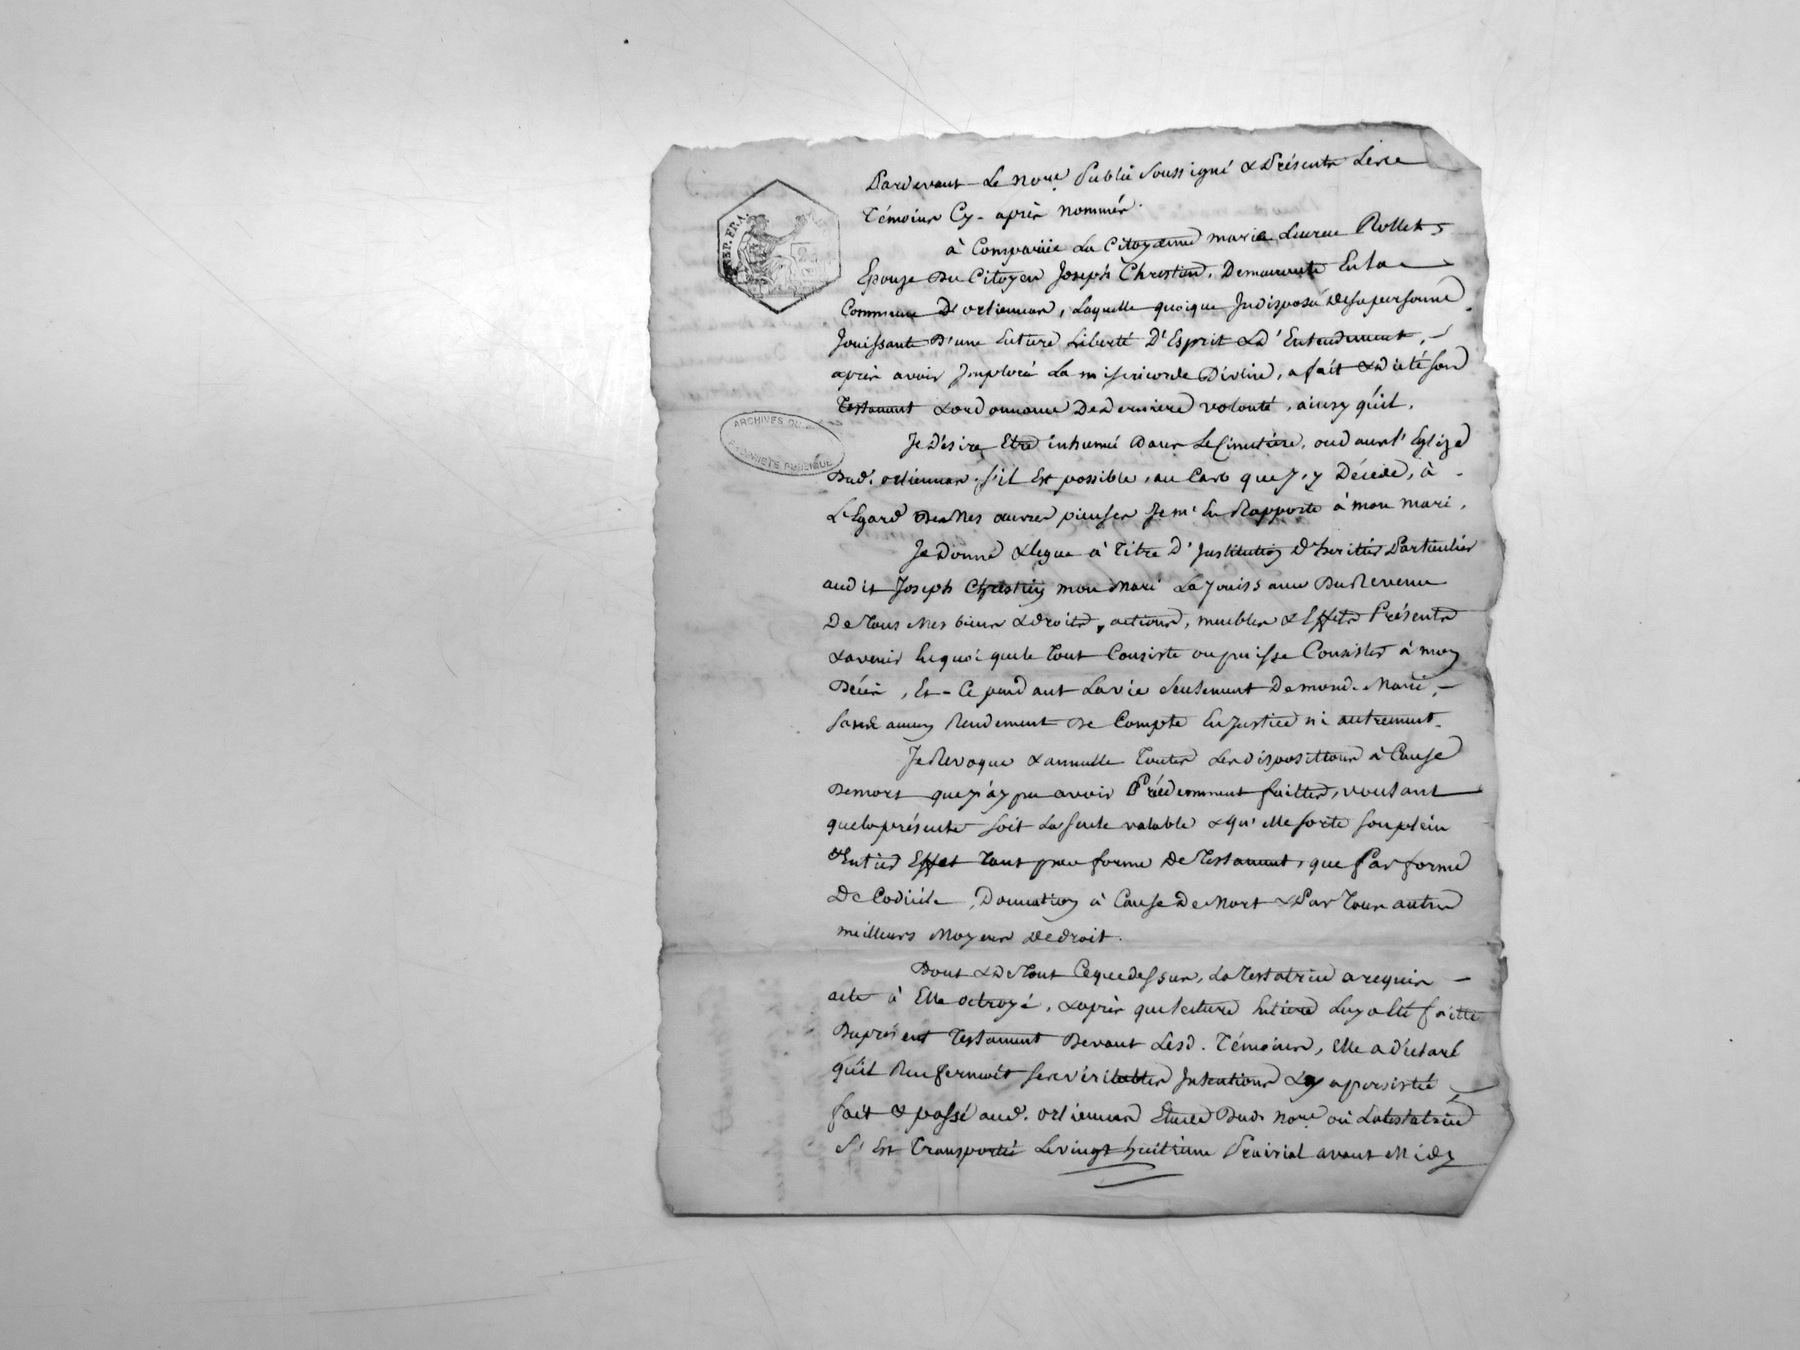 REP. FRA.
Pardevant Le Nore. Public Soussigné & Présents Les
Témoins Cy-après nommés.
à Comparüe La Citoyenne marie Rollet
Epouse Du Citoyen Joseph Christin, Demeurante En la
Commune D'orliennas, Laquelle quoique Indisposée de sa personne
Jouissante D'une Entiere Liberté D'Esprit & D'Entendement,
après avoir Imploré La misericorde Divine, a fait & dicté son
Testament & ordonnance De derniere volonté, ainsy qu'il.
ARCHIVES DU
Je Désire Etre inhumée Dans Le Cimetiere, ou dans l'Eglize
Dud. orliennas, s'il Est possible, au Cas que J'y Décede, à
L'Egard De Mes œuvres pieuses Je m'En Rapporte à mon mari.
Je Donne & legue à Titre D'Institution D'heritier Particulier
audit Joseph Christin mon Mari La Jouissance Du Revenu
De Tous Mes biens & droits, actions, meubles & Effets Présents
& avenir En quoi que le Tout Consiste ou puisse Consister à mon
Décès, Et Ce pendant La vie Seulement De mond. Mari,
Sans aucun Rendement De Compte En Justice ni autrement.
Je Revoque & annulle Toutes Les dispositions à Cause
De mort que J'ay pu avoir Précédemment faittes, voulant
que la présente soit La seule valable & qu'elle sorte son plein
& Entier Effet Tant par forme De Testament, que Par forme
De Codicile, Donnation à Cause De Mort & Par Tous autres
meilleurs Moyens De droit.
Dont & De Tout Ce que dessus, La Testatrice a requis
acte à Elle octroyé, & après que lecture Entiere Luy a Eté faitte
Du présent Testament Devant Lesd. Témoins, Elle a déclaré
qu'il Renfermoit ses véritables Intentions & y a persisté
fait & passé aud. orliennas Etude Dud. Nore. où La testatrice
S'Est Transportée Le vingt huitieme Prairial avant Midy